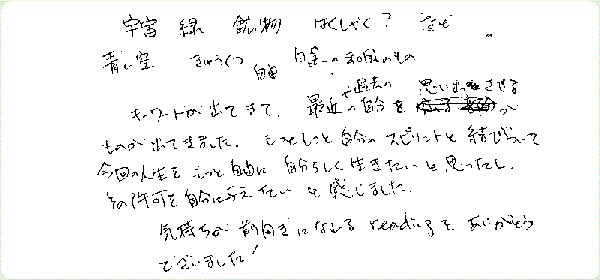 宇宙 緑 鉱物 はくしゃく? なぜ
青い空 きゅうくつ 自由
キーワードが出てきて、最近や過去の自分を思い出させる
ものが出てきました。もっともっと自分のスピリットと結びついて
今回の人生をもっと自由に自分らしく生きたいと思ったし、
その許可を自分に与えたいと感じました。
気持ちが前向きになれるreadingをありがとう
ございました!